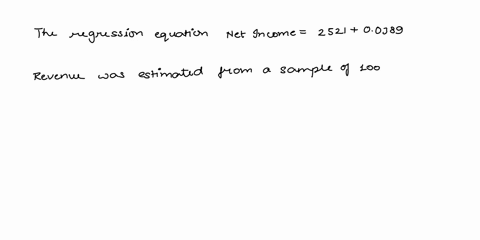 The regression equation Net Income = 2521 + 0.0989
Revenue was estimated from a sample of 100